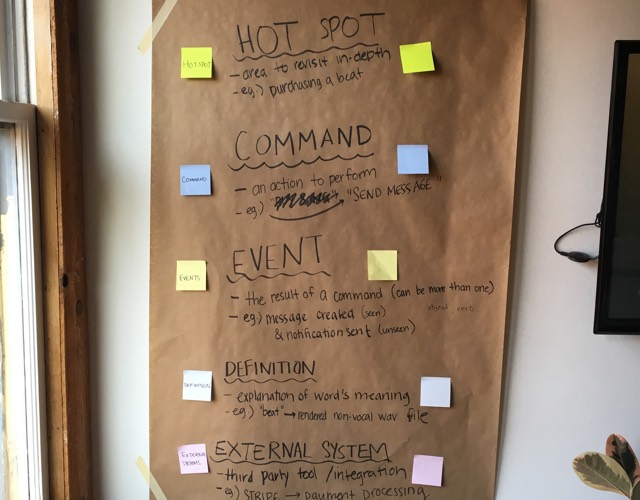 HOT SPOT
HOTSPOT
- area to revisit in-depth
- eg.) purchasing a beat
COMMAND
COMMAND
- an action to perform
- eg.) "SEND MESSAGE"
EVENT
EVENTS
- the result of a command (can be more than one)
- eg.) message created (seen)
& notification sent (unseen)
DEFINITION
DEFINITION
- explanation of word's meaning
- eg.) "beat" → rendered non-vocal wav file
EXTERNAL SYSTEM
EXTERNAL
- third party tool / integration
- eg) STRIPE → payment processing